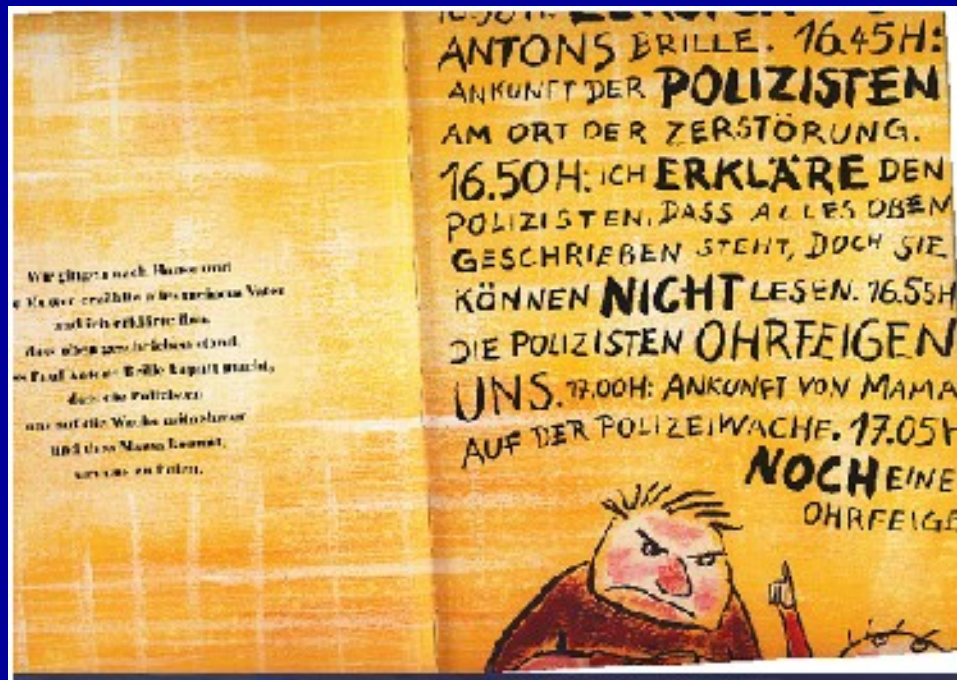 Wir gingen nach Hause und
Mutter erzählte alles meinem Vater
und ich erklärte ihm,
dass oben geschrieben stand,
Paul Antons Brille kaputt macht,
dass die Polizisten
uns auf die Wache mitnehmen
und dass Mama kommt,
um uns zu holen.
ANTONS BRILLE. 16.45H:
ANKUNFT DER POLIZISTEN
AM ORT DER ZERSTÖRUNG.
16.50H: ICH ERKLÄRE DEN
POLIZISTEN, DASS ALLES OBEN
GESCHRIEBEN STEHT, DOCH SIE
KÖNNEN NICHT LESEN. 16.55H
DIE POLIZISTEN OHRFEIGEN
UNS. 17.00H: ANKUNFT VON MAMA
AUF DER POLIZEIWACHE. 17.05H
NOCH EINE
OHRFEIGE